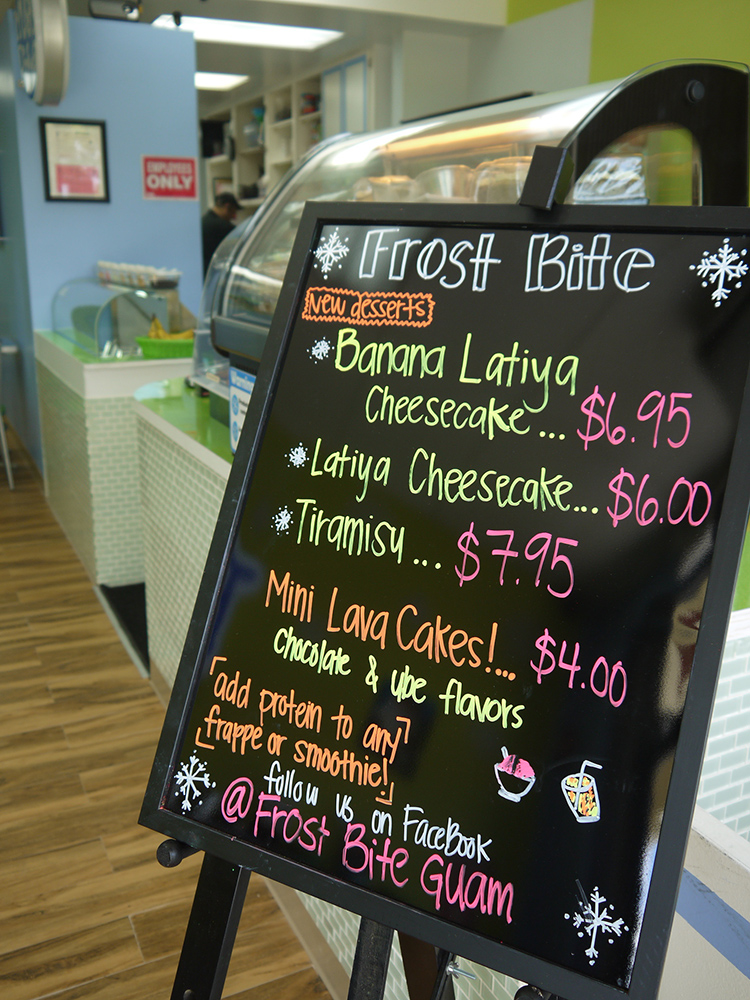 EMPLOYEES
ONLY
Frost Bite
New desserts
Banana Latiya
Cheesecake... $6.95
Latiya Cheesecake... $6.00
Tiramisu... $7.95
Mini Lava Cakes!... $4.00
chocolate & ube flavors
add protein to any
frappe or smoothie!
follow us on FaceBook
@Frost Bite Guam